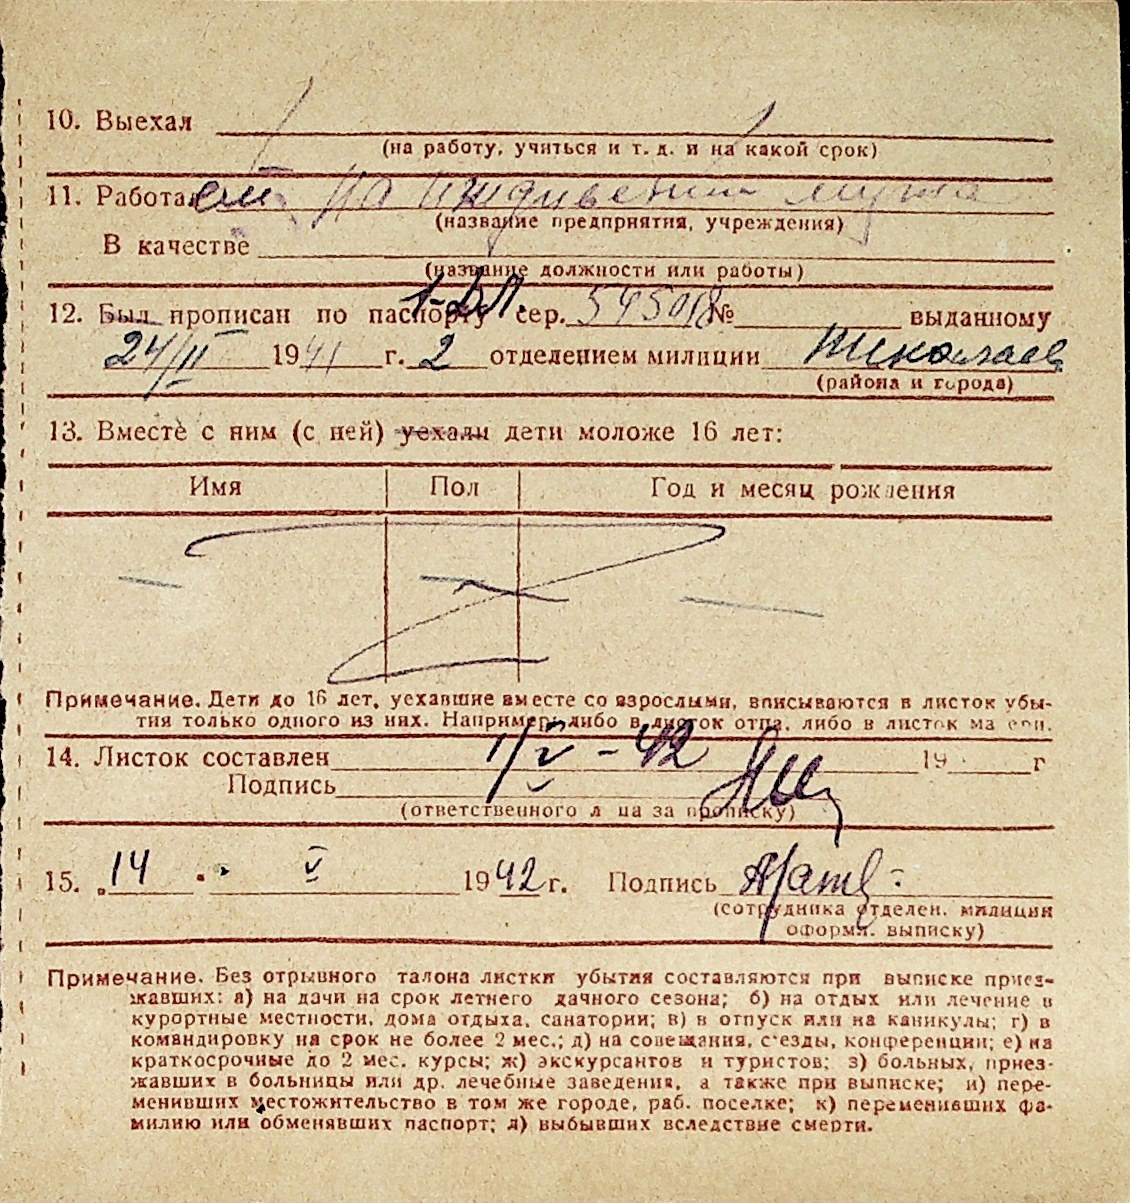 10. Выехал
(на работу, учиться и т. д. и на какой срок)
11. Работа на иждивении мужа
(название предприятия, учреждения)
В качестве
(название должности или работы)
12. Был прописан по паспорту сер. 545018 № выданному
24/II 1941 г. 2 отделением милиции Николаев
(района и города)
13. Вместе с ним (с ней) уехали дети моложе 16 лет:
Имя Пол Год и месяц рождения
Примечание. Дети до 16 лет, уехавшие вместе со взрослыми, вписываются в листок убы-
тия только одного из них. Например: либо в листок отца, либо в листок матери.
14. Листок составлен 1/V - 42 19 г
Подпись
(ответственного лица за прописку)
15. 14 V 1942 г. Подпись
(сотрудника отделен. милиции
оформл. выписку)
Примечание. Без отрывного талона листки убытия составляются при выписке приез-
жавших: а) на дачи на срок летнего дачного сезона; б) на отдых или лечение в
курортные местности, дома отдыха, санатории; в) в отпуск или на каникулы; г) в
командировку на срок не более 2 мес.; д) на совещания, съезды, конференции; е) на
краткосрочные до 2 мес. курсы; ж) экскурсантов и туристов; з) больных, приез-
жавших в больницы или др. лечебные заведения, а также при выписке; и) пере-
менивших местожительство в том же городе, раб. поселке; к) переменивших фа-
милию или обменявших паспорт; л) выбывших вследствие смерти.